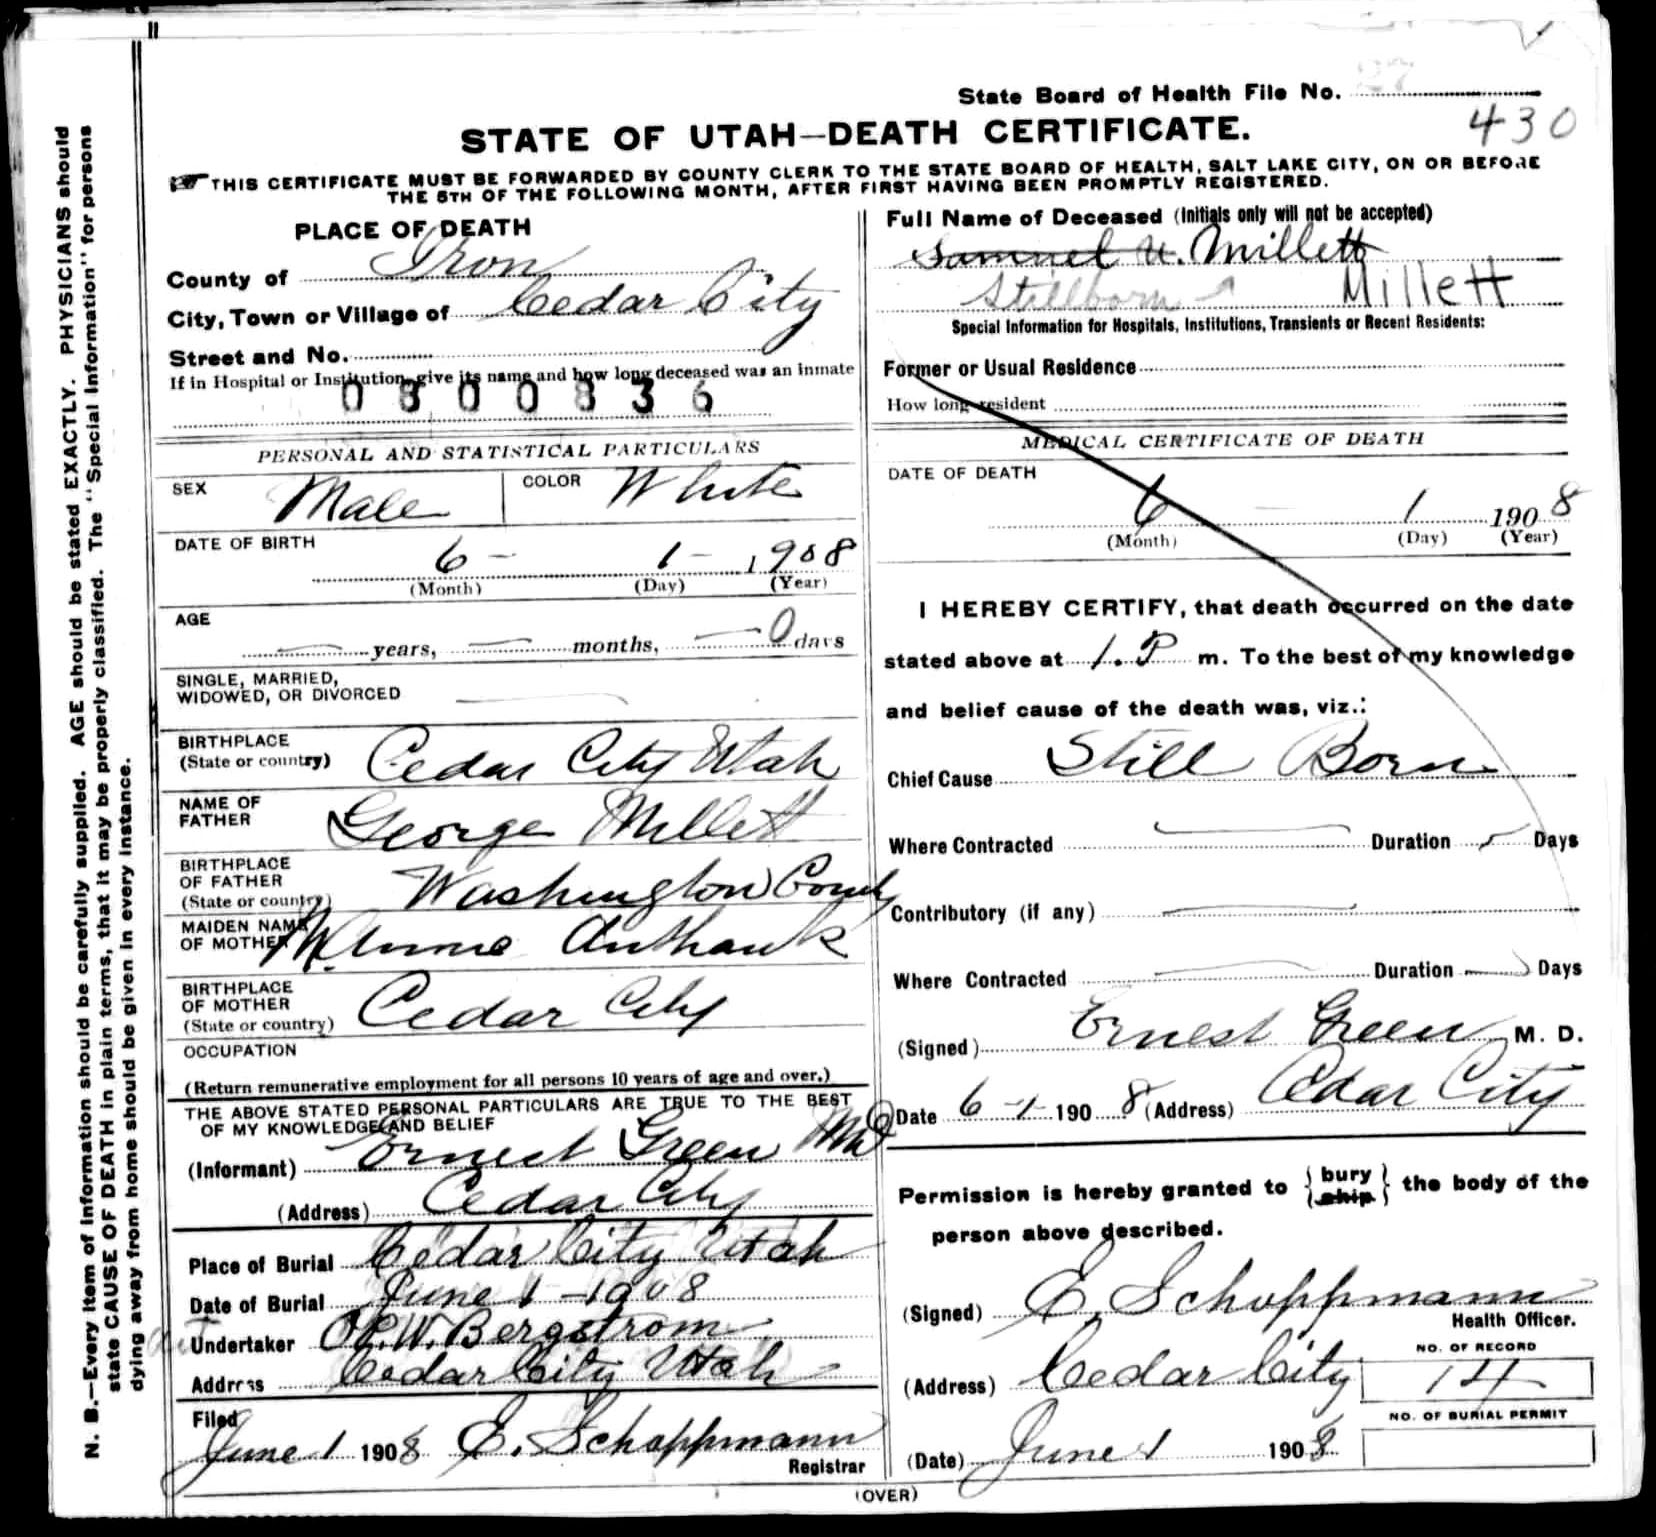 State Board of Health File No. 27
430
STATE OF UTAH—DEATH CERTIFICATE.
THIS CERTIFICATE MUST BE FORWARDED BY COUNTY CLERK TO THE STATE BOARD OF HEALTH, SALT LAKE CITY, ON OR BEFORE
THE 5TH OF THE FOLLOWING MONTH, AFTER FIRST HAVING BEEN PROMPTLY REGISTERED.
N. B.—Every item of information should be carefully supplied. AGE should be stated EXACTLY. PHYSICIANS should
state CAUSE OF DEATH in plain terms, that it may be properly classified. The "Special Information" for persons
dying away from home should be given in every instance.
PLACE OF DEATH
County of Iron
City, Town or Village of Cedar City
Street and No.
If in Hospital or Institution, give its name and how long deceased was an inmate
0300836
PERSONAL AND STATISTICAL PARTICULARS
SEX Male COLOR White
DATE OF BIRTH
6 - 1 - 1908
(Month) (Day) (Year)
AGE
years, months, 0 days
SINGLE, MARRIED,
WIDOWED, OR DIVORCED
BIRTHPLACE
(State or country) Cedar City Utah
NAME OF
FATHER George Millett
BIRTHPLACE
OF FATHER
(State or country) Washington County
MAIDEN NAME
OF MOTHER Minnie
BIRTHPLACE
OF MOTHER
(State or country) Cedar City
OCCUPATION
(Return remunerative employment for all persons 10 years of age and over.)
THE ABOVE STATED PERSONAL PARTICULARS ARE TRUE TO THE BEST
OF MY KNOWLEDGE AND BELIEF
(Informant) Ernest Green MD
(Address) Cedar City
Place of Burial Cedar City Utah
Date of Burial June 1 - 1908
Undertaker O.P.W. Bergstrom
Address Cedar City Utah
Filed
June 1 1908 E. Schoppmann
Registrar
Full Name of Deceased (Initials only will not be accepted)
Samuel U. Millett
Stillborn Millett
Special Information for Hospitals, Institutions, Transients or Recent Residents:
Former or Usual Residence
How long resident
MEDICAL CERTIFICATE OF DEATH
DATE OF DEATH
6 - 1 1908
(Month) (Day) (Year)
I HEREBY CERTIFY, that death occurred on the date
stated above at 1. P m. To the best of my knowledge
and belief cause of the death was, viz.:
Chief Cause Still Born
Where Contracted Duration Days
Contributory (if any)
Where Contracted Duration Days
(Signed) Ernest Green M. D.
Date 6-1- 1908 (Address) Cedar City
Permission is hereby granted to { bury ship } the body of the
person above described.
(Signed) E. Schoppmann
Health Officer.
(Address) Cedar City
NO. OF RECORD
14
NO. OF BURIAL PERMIT
(Date) June 1 1908
(OVER)